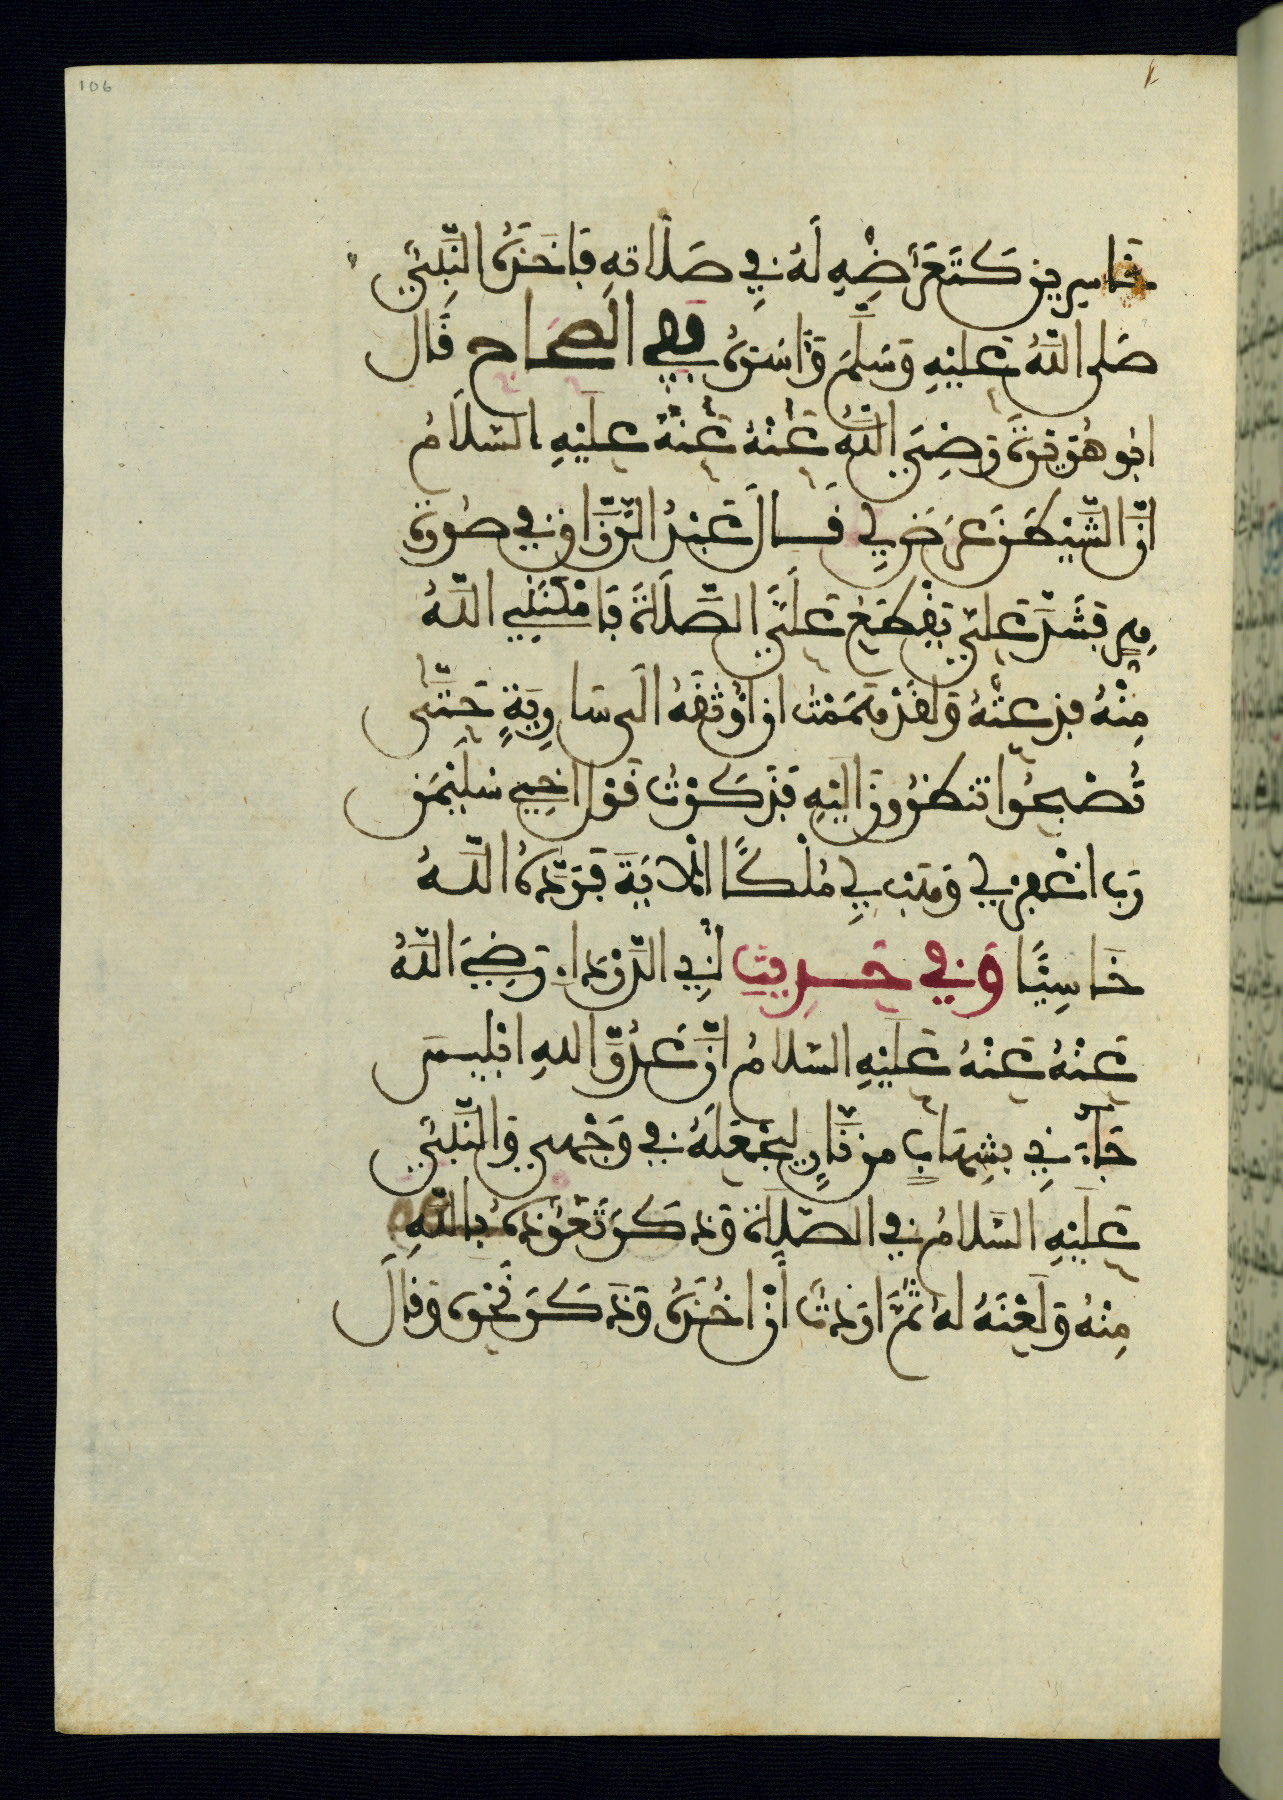 106
خاسرين كتعرضه له في صلاته فاخذه النبيّ
صلى اللّه عليه وسلّم واسره ففي الصحاح قال
ابو هريرة رضي اللّه عنه عنه عليه السلام
انّ الشّيطن عرض لي فسال عبد الرّزّاق في صورة
هر فشدّ عليّ يقطع عليّ الصّلاة فامكنني اللّه
منه فذعته ولقد هممت ان اوثقه الى سارية حتّى
تصبحوا تنظرون اليه فذكرت قول اخي سليمن
رب اغفر لي وهب لي ملكا الاية فردّه اللّه
خاسئا وفي حديث ابي الدّرداء رضي اللّه
عنه عنه عليه السّلام انّ عدوّ الله ابليس
جاءني بشهاب من نّار ليجعله في وجهي والنّبيّ
عليه السّلام في الصّلاة وذكر تعوّذه باللّه
منه ولعنه له ثمّ اردت أن اخذه وذكر نحوه وقال